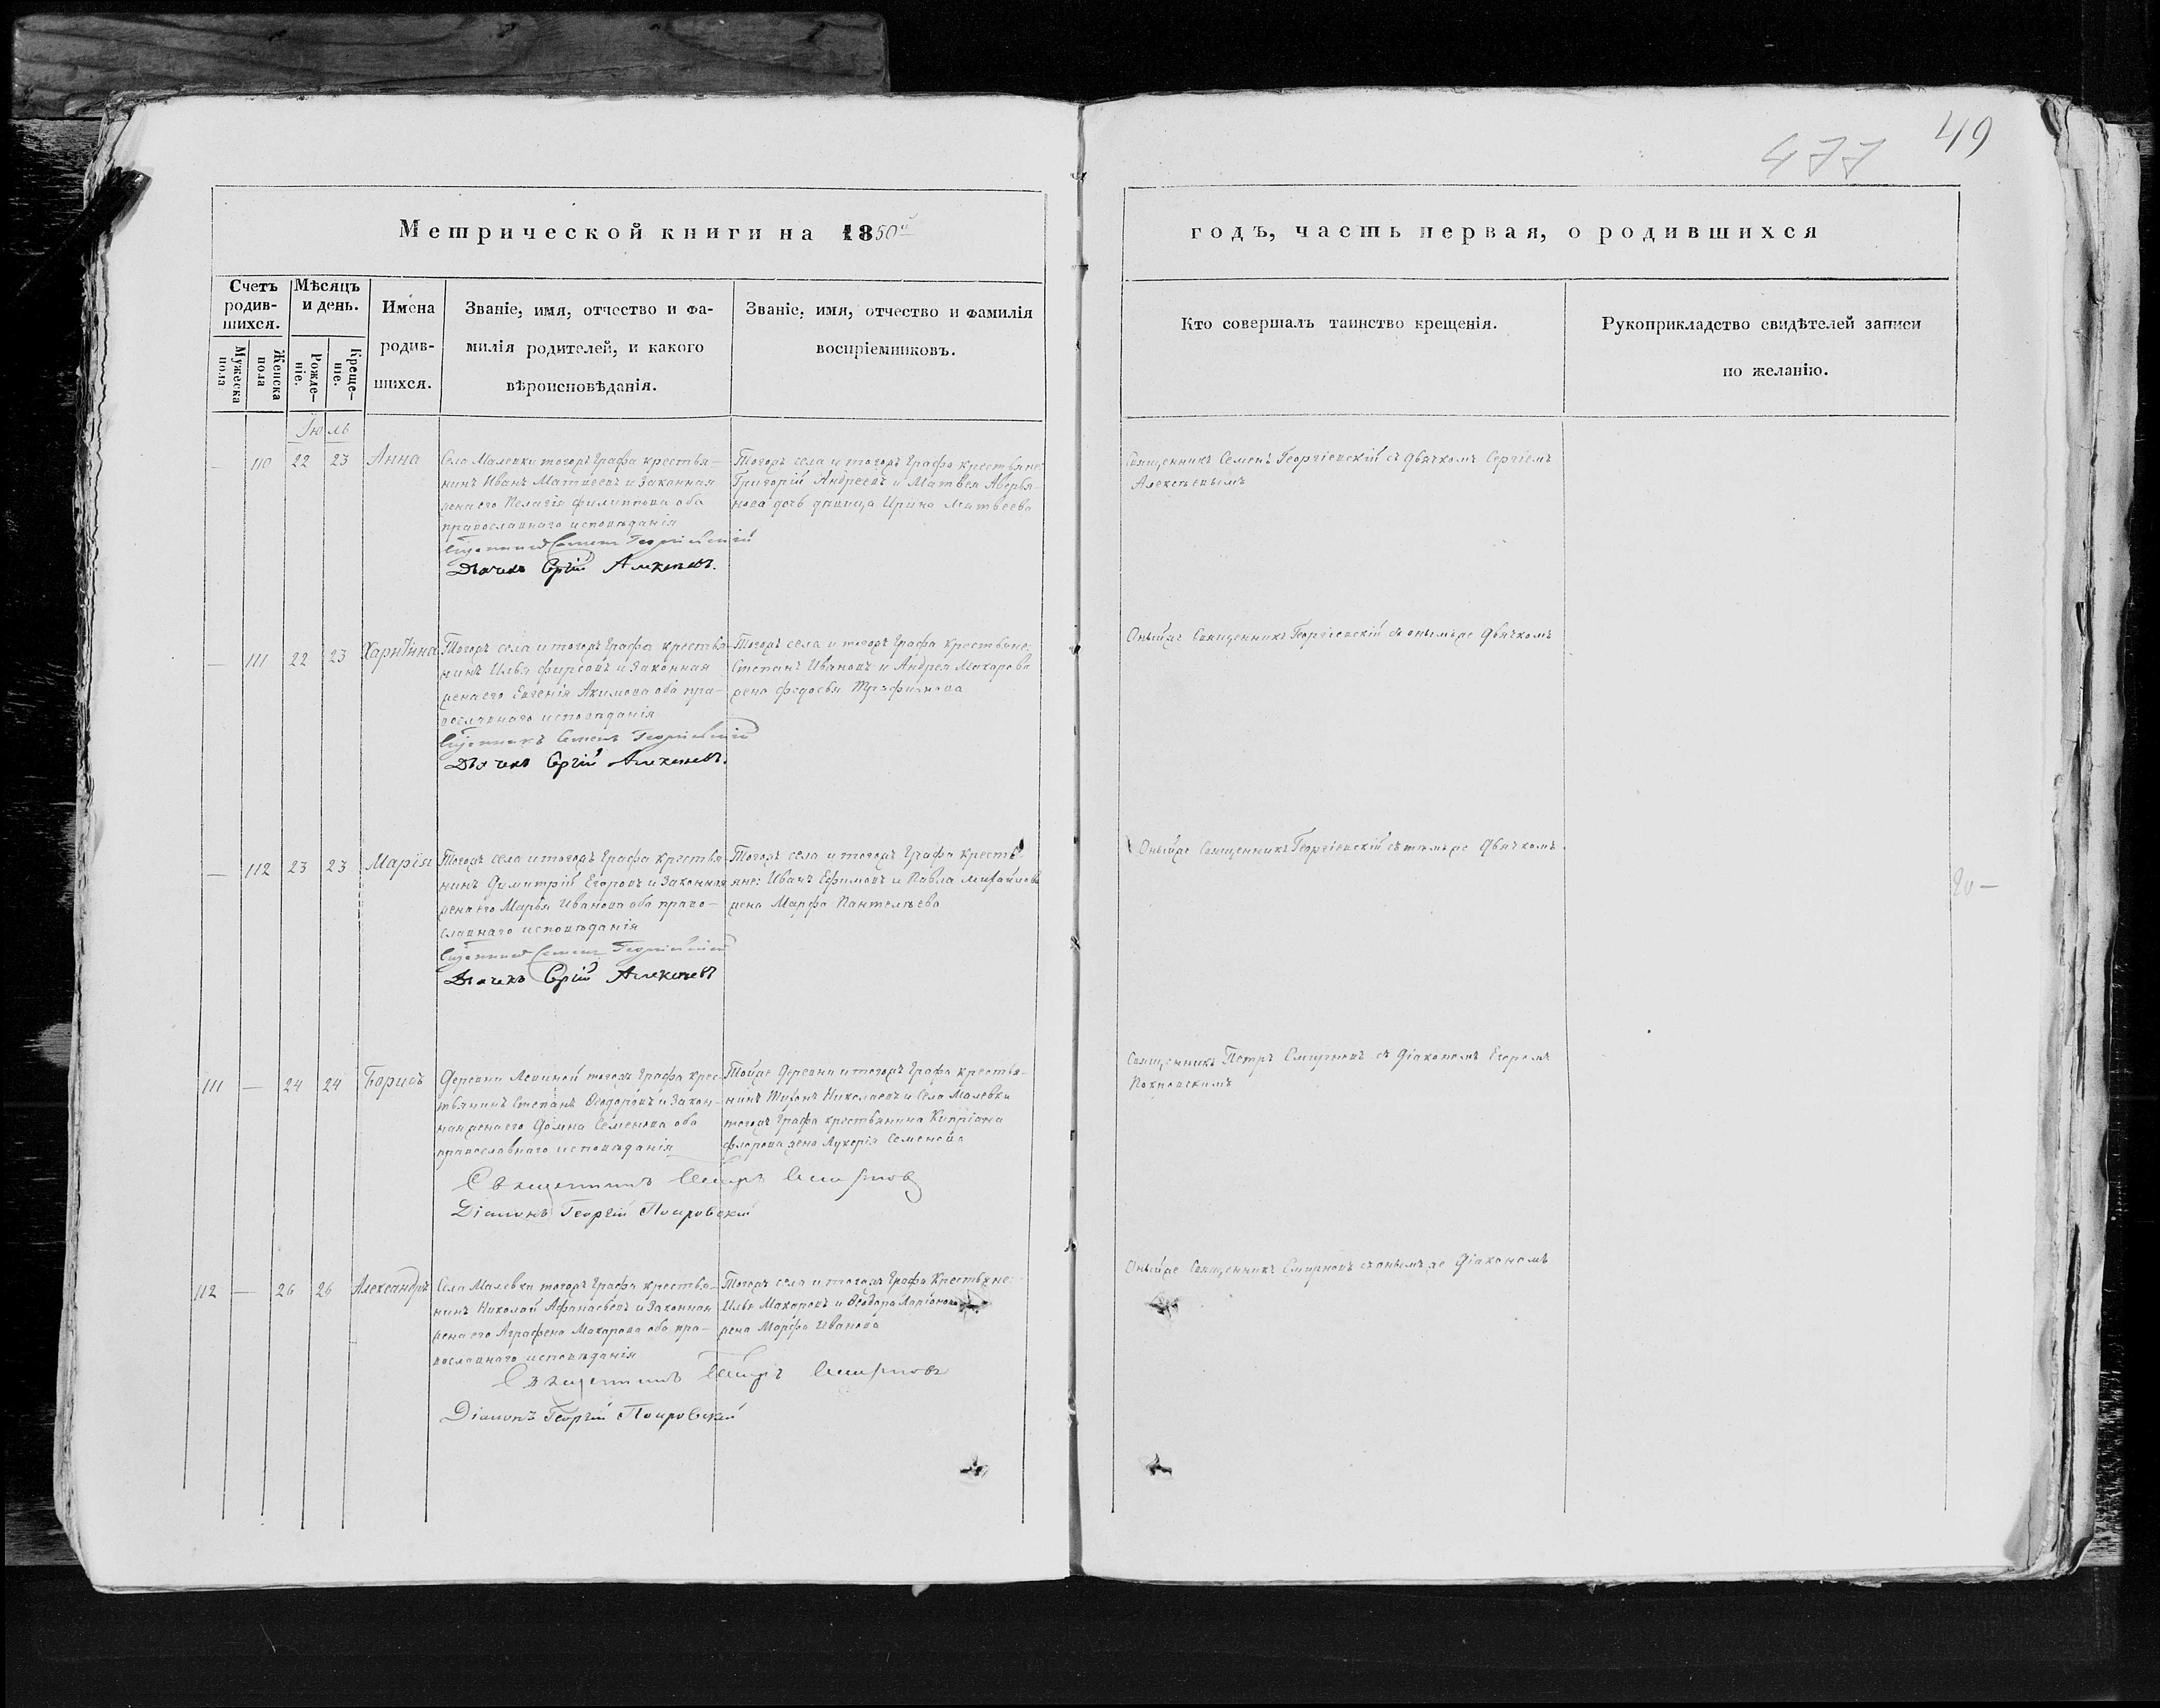 49
477
Метрической книги на 1850й
годъ, часть первая, о родившихся
Счетъ родив-шихся.
Мужеска пола
Женска пола
Мѣсяцъ и день.
Рожде-ніе.
Креще-ніе.
Имена
родив-
шихся.
Званіе, имя, отчество и фа-
милія родителей, и какого
вѣроисповѣданія.
Званіе, имя, отчество и фамилія
воспріемниковъ.
Кто совершалъ таинство крещенія.
Рукоприкладство свидѣтелей записи
по желанію.
Іюль
— 110 22 23 Анна
Села Малевки тогожъ Графа крестья-
нинъ Иванъ Матвеевъ и Законная
жена его Пелагія Филиппова оба
православнаго исповѣданія
Священникъ Семенъ Георгіевскій
Дьячекъ Сергій Алексѣевъ.
Тогожъ села и тогожъ Графа крестьяне:
Григорій Андреевъ и Матвея Аверья-
нова дочь дѣвица Ирина Матвеева
Священникъ Семенъ Георгіевскій съ дьячкомъ Сергіемъ
Алексѣевымъ
— 111 22 23 Харитина
Тогожъ села и тогожъ Графа крестья-
нинъ Илья Фирсовъ и Законная
жена его Евгенія Акимова оба пра-
вославнаго исповѣданія
Священникъ Семенъ Георгіевскій
Дьячекъ Сергій Алексѣевъ.
Тогожъ села и тогожъ Графа крестьяне:
Степанъ Ивановъ и Андрея Макарова
жена Федосья Трофимова
Оныйже Священникъ Георгіевскій съ онымъже дьячкомъ
— 112 23 23 Марія
Тогожъ села и тогожъ Графа крестья-
нинъ Димитрій Егоровъ и Законная
жена его Марья Иванова оба право-
славнаго исповѣданія
Священникъ Семенъ Георгіевскій
Дьячекъ Сергій Алексѣевъ
Тогожъ села и тогожъ Графа кресть-
яне: Иванъ Ефимовъ и Павла Михайлова
жена Марфа Пантелѣева
Оныйже Священникъ Георгіевскій съ тѣмъже дьячкомъ.
20 —
111 — 24 24 Борисъ
Деревни Левиной тогожъ Графа крес-
тьянинъ Степанъ Ѳеодоровъ и Закон-
ная жена его Домна Семенова оба
православнаго исповѣданія
Священникъ Петръ Смирновъ
Діаконъ Георгій Покровскій
Тойже деревни и тогожъ Графа крестья-
нинъ Николаевъ и Села Малевки
тогожъ Графа крестьянина Кипріана
Флорова жена Лукерія Семенова
Священникъ Петръ Смирновъ съ діакономъ Егоромъ
Покровскимъ
112 — 26 26 Александръ
Села Малевки тогожъ Графа крестья-
нинъ Николай Афанасьевъ и Законная
жена его Аграфена Макарова оба пра-
вославнаго исповѣданія
Священникъ Петръ Смирновъ
Діаконъ Георгій Покровскій
Тогожъ села и тогожъ Графа Крестьяне:
Илья Макаровъ и Ѳеодора Ларіонова
жена Марфа Иванова
Оныйже Священникъ Смирновъ съ онымъже діакономъ